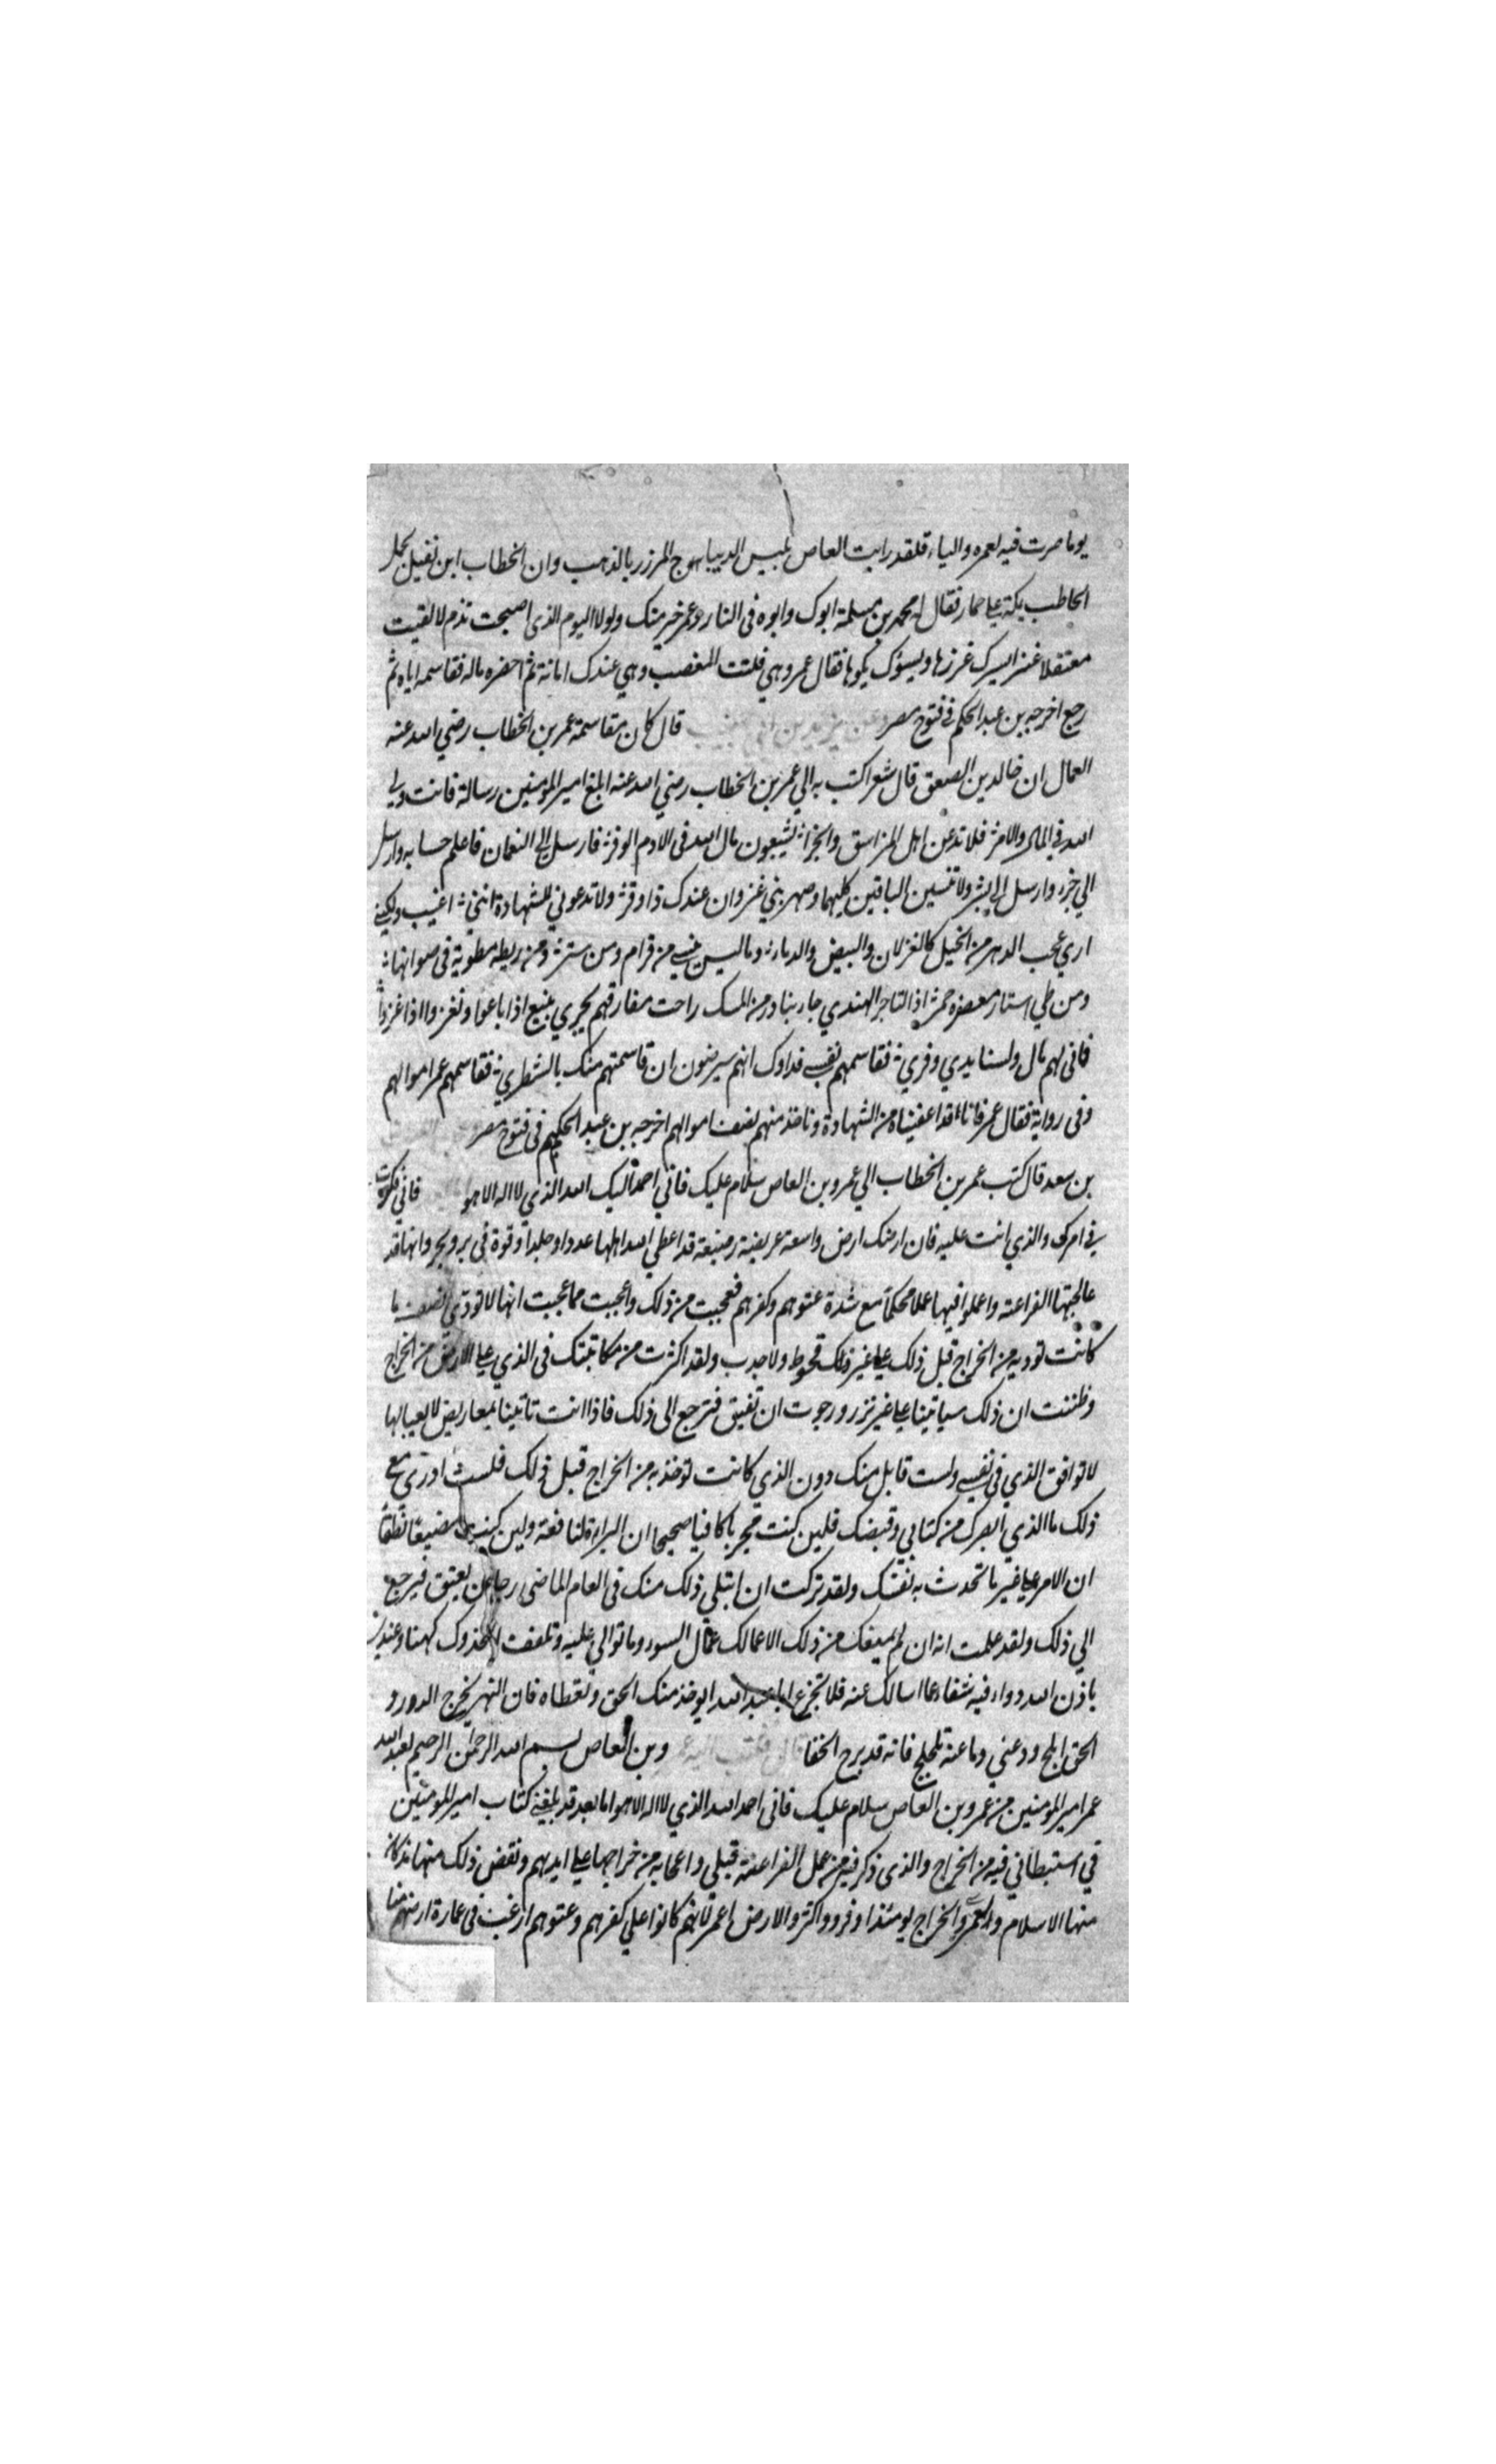 يوما صرت فيه لعمر واليا، فلقد رايت العاص يلبس الديباج المزرر بالذهب وان الخطاب ابن نفيل يحمل
الحاطب بمكة علي حمار فقال له محمد بن مسلمة ابوك وابوه فى النار وعمر خير منك ولولا اليوم الذى اصبحت تذم لالفيت
معتقلا عنزا يسرك غزرها ويسوك بكوها فقال عمرو هي فلتت المغضب وهي عندك امانة ثم احضره ماله فقاسمه اياه ثم
رجع اخرجه بن عبد الحكم فى فتوح مصر قال كان مقاسمة عمر بن الخطاب رضي الله عنه
العمال ان خالد بن الصعق قال شعرا كتب به الي عمر بن الخطاب رضي الله عنه ابلغ امير المومنين رسالة فانت ولي
الله فى المال والامر فلا تدعن اهل الرزاسق والجزا يشبعون مال الله فى الادم الوفر فارسل الى النعمان فاعلم حسابه وارسل
الي جزء وارسل الى بشر ولا تنسين الباقين كليهما وصهر بني غزوان عندك ذا وفر ولا تدعوني للشهادة انني اغيب ولكني
اري عجب الدهر من الخيل كالغزلان والبيض والدما وما ليس ينسي من قرام ومن ستر ومن ريطه مطوية فى صوانها
ومن طي استار معصفره حمر اذا التاجر الهندي جاء بنا در من المسك راحت مفارقهم يجري نبيع اذا باعوا ونغزوا اذا غزوا
فانى لهم مال ولسنا بدي وفري فقاسمهم نفسي فداوك انهم سيرضون ان قاسمتهم منك بالشطر فقاسمهم عمر اموالهم
وفى رواية فقال عمر فانا قد اعفيناه من الشهادة وناخذ منهم نصف اموالهم اخرجه بن عبد الحكم فى فتوح مصر
بن سعد قال كتب عمر بن الخطاب الي عمرو بن العاص سلام عليك فاني احمد اليك الله الذي لا اله الا هو فاني فكرت
في امرك والذي انت عليه فان ارضك ارض واسعة عريضة رفيعة قد اعطي الله اهلها عددا وجلدا وقوة فى بر وبحر وانها قد
عالجتها الفراعنة واعملوا فيها عملا محكما مع شدة عتوهم وكفرهم فعجبت من ذلك واعجبت مما عجبت انها لا تودي نصف ما
كانت توديه من الخراج قبل ذلك علي غير ذلك قحوط ولا جدب ولقد اكثرت من مكاتبتك فى الذي علي الارض من الخراج
وظننت ان ذلك سياتينا علي غير نزر ورجوت ان تفيق فترجع الى ذلك فاذا انت تاتينا بمعاريض لا يعبا لها
لا توافق الذي فى نفسي ولست قابل منك دون الذي كانت توخذ به من الخراج قبل ذلك فلست ادري مع
ذلك ما الذي انصرك من كتابي وقبضك فلين كنت مجربا كافيا صحيحا ان البراة لنافعة ولين كنت مضيعا نطفا
ان الامر علي غير ما تحدث به نفسك ولقد تركت ان ابتلي ذلك منك فى العام الماضى رجا من يعتق فيرجع
الي ذلك ولقد علمت انه ان لم يمنعك من ذلك الا عمالك عمال السور وما توالي عليه وتلففت اتخذوك كهفا وعندي
باذن الله دواء فيه شفاء عما اسالك عنه فلا تجزع ابا عبد الله ان يوخذ منك الحق وتعطاه فان النهر يخرج الدور و
الحق ابلج ودعني وما عنه تلجلج فانه قد برح الخفا وبن العاص بسم الله الرحمن الرحيم لعبد الله
عمر امير المومنين من عمرو بن العاص سلام عليك فانى احمد الله الذي لا اله الا هو اما بعد قد بلغني كتاب امير المومنين
في استبطاني فيه من الخراج والذى ذكر فيه من عمل الفراعنة قبلي واعجابه من خراجها علي ايديهم ونقض ذلك منها مذ كان
منها الاسلام ولعمري والخراج يومئذ اوفر وواكثر والارض اعمر لانهم كانوا علي كفرهم وعتوهم ارغب فى عمارة ارضهم منا